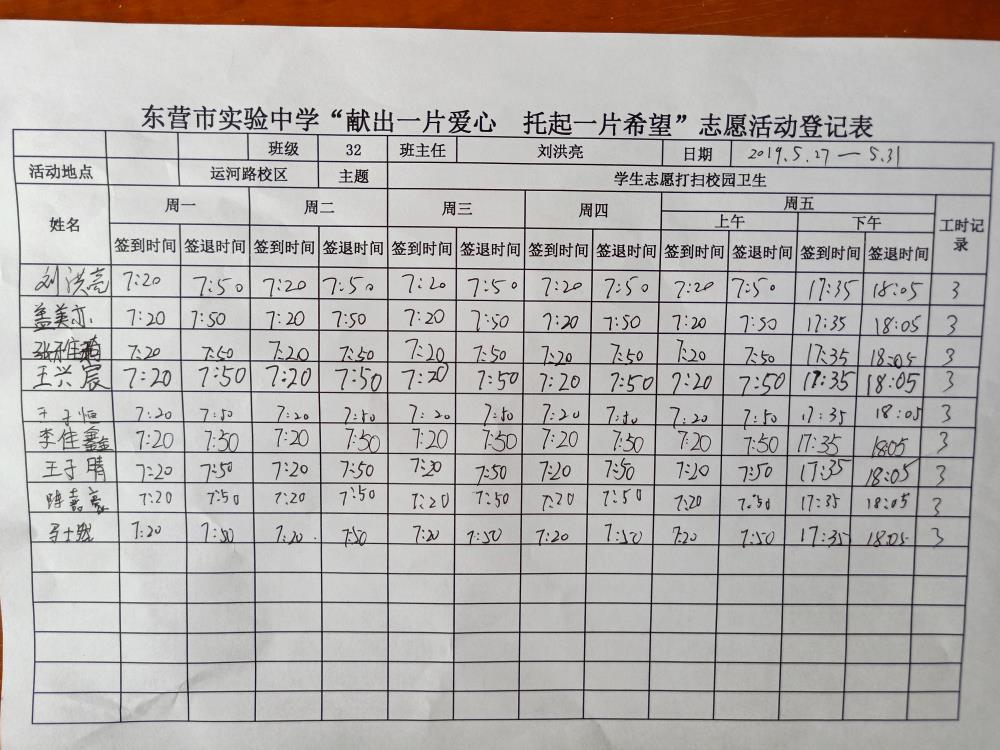 东营市实验中学“献出一片爱心 托起一片希望”志愿活动登记表
班级 32 班主任 刘洪亮 日期 2019.5.27—5.31
活动地点 运河路校区 主题 学生志愿打扫校园卫生
姓名 周一 周二 周三 周四 周五 工时记录
上午 下午
签到时间 签退时间 签到时间 签退时间 签到时间 签退时间 签到时间 签退时间 签到时间 签退时间 签到时间 签退时间
刘洪亮 7:20 7:50 7:20 7:50 7:20 7:50 7:20 7:50 7:20 7:50 17:35 18:05 3
盖美亦 7:20 7:50 7:20 7:50 7:20 7:50 7:20 7:50 7:20 7:50 17:35 18:05 3
7:20 7:50 7:20 7:50 7:20 7:50 7:20 7:50 7:20 7:50 17:35 18:05 3
王兴宸 7:20 7:50 7:20 7:50 7:20 7:50 7:20 7:50 7:20 7:50 17:35 18:05 3
王子恒 7:20 7:50 7:20 7:50 7:20 7:50 7:20 7:50 7:20 7:50 17:35 18:05 3
李佳鑫 7:20 7:50 7:20 7:50 7:20 7:50 7:20 7:50 7:20 7:50 17:35 18:05 3
王子晴 7:20 7:50 7:20 7:50 7:20 7:50 7:20 7:50 7:20 7:50 17:35 18:05 3
陈嘉豪 7:20 7:50 7:20 7:50 7:20 7:50 7:20 7:50 7:20 7:50 17:35 18:05 3
7:20 7:50 7:20 7:50 7:20 7:50 7:20 7:50 7:20 7:50 17:35 18:05 3